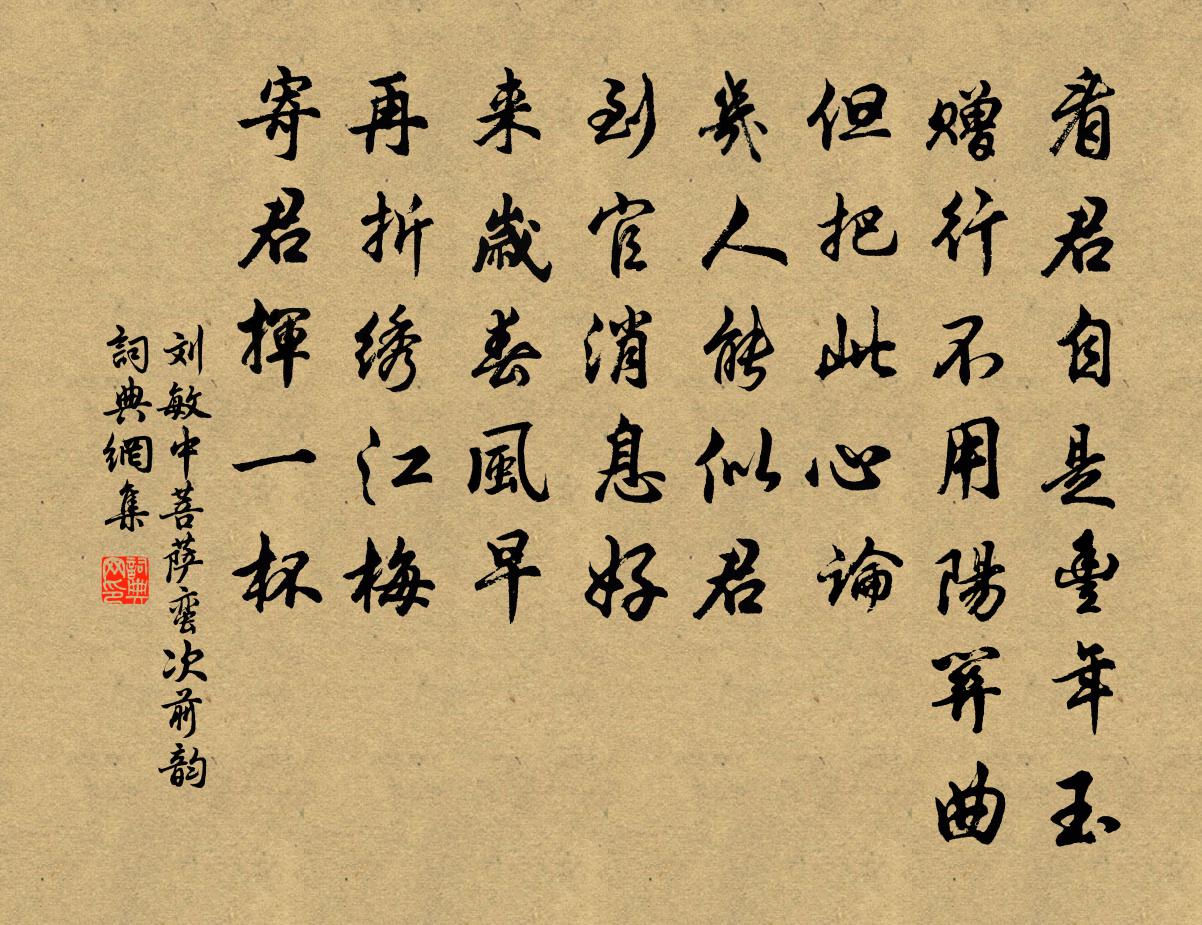 看君自是豐年玉
贈行不用陽関曲
但把此心論
幾人能似君
到官消息好
来歲春風早
再折绣江梅
寄君揮一杯
刘敏中菩萨蛮次前韵
詞典網集
詞典网印